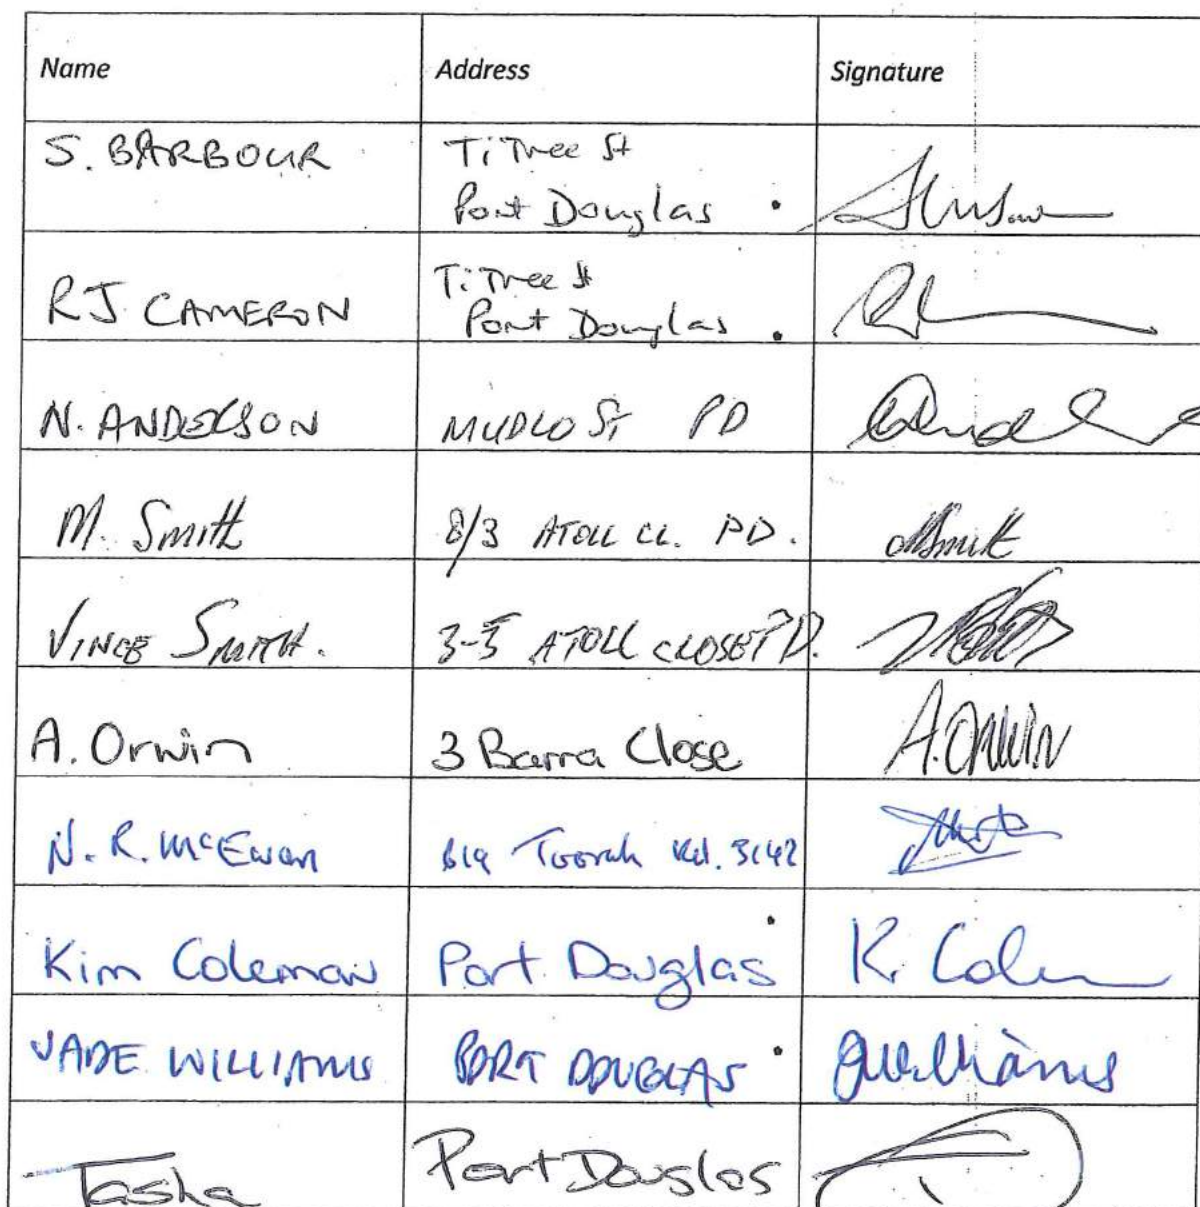 Name Address Signature
S. BARBOUR Ti Tree St
Port Douglas
RJ CAMERON Ti Tree St
Port Douglas
N. ANDERSON MUDLO St PD
M. Smith 8/3 ATOLL CL. PD. MSmith
VINCE SMITH. 3-5 ATOLL CLOSE PD.
A. Orwin 3 Barra Close A. ORWIN
N. R. McEwan 619 Toorak Rd. 3142
Kim Coleman Port Douglas K. Cole
JADE WILLIAMS PORT DOUGLAS JWilliams
Tasha Port Douglas